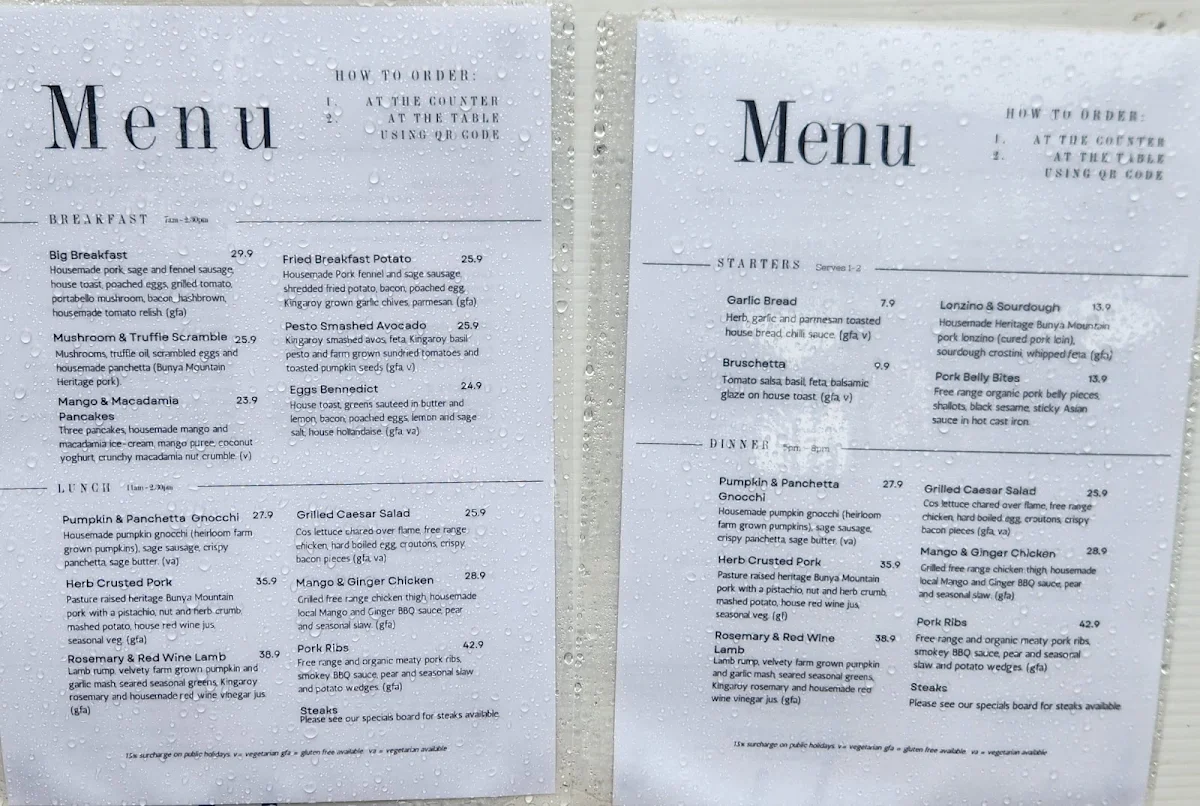 Menu
HOW TO ORDER:
1. AT THE COUNTER
2. AT THE TABLE
USING QR CODE
BREAKFAST 7am-2.30pm
Big Breakfast 29.9
Housemade pork, sage and fennel sausage,
house toast, poached eggs, grilled tomato,
portabello mushroom, bacon, hashbrown,
housemade tomato relish. (gfa)
Mushroom & Truffle Scramble 25.9
Mushrooms, truffle oil, scrambled eggs and
housemade panchetta (Bunya Mountain
Heritage pork).
Mango & Macadamia 23.9
Pancakes
Three pancakes, housemade mango and
macadamia ice-cream, mango puree, coconut
yoghurt, crunchy macadamia nut crumble. (v)
Fried Breakfast Potato 25.9
Housemade Pork fennel and sage sausage,
shredded fried potato, bacon, poached egg,
Kingaroy grown garlic chives, parmesan. (gfa)
Pesto Smashed Avocado 25.9
Kingaroy smashed avos, feta, Kingaroy basil
pesto and farm grown sundried tomatoes and
toasted pumpkin seeds (gfa, v)
Eggs Bennedict 24.9
House toast, greens sauteed in butter and
lemon, bacon, poached eggs, lemon and sage
salt, house hollandaise (gfa, va)
LUNCH 11am-2.30pm
Pumpkin & Panchetta Gnocchi 27.9
Housemade pumpkin gnocchi (heirloom farm
grown pumpkins), sage sausage, crispy
panchetta, sage butter. (va)
Herb Crusted Pork 35.9
Pasture raised heritage Bunya Mountain
pork with a pistachio, nut and herb crumb,
mashed potato, house red wine jus,
seasonal veg. (gfa)
Rosemary & Red Wine Lamb 38.9
Lamb rump, velvety farm grown pumpkin and
garlic mash, seared seasonal greens, Kingaroy
rosemary and housemade red wine vinegar jus.
(gfa)
Grilled Caesar Salad 25.9
Cos lettuce chared over flame, free range
chicken, hard boiled egg, croutons, crispy
bacon pieces (gfa, va)
Mango & Ginger Chicken 28.9
Grilled free range chicken thigh, housemade
local Mango and Ginger BBQ sauce, pear
and seasonal slaw. (gfa)
Pork Ribs 42.9
Free range and organic meaty pork ribs,
smokey BBQ sauce, pear and seasonal slaw
and potato wedges. (gfa)
Steaks
Please see our specials board for steaks available.
15% surcharge on public holidays. v= vegetarian gfa = gluten free available va = vegetarian available
Menu
HOW TO ORDER:
1. AT THE COUNTER
2. AT THE TABLE
USING QR CODE
STARTERS Serves 1-2
Garlic Bread 7.9
Herb, garlic and parmesan toasted
house bread, chilli sauce. (gfa, v)
Bruschetta 9.9
Tomato salsa, basil, feta, balsamic
glaze on house toast. (gfa, v)
Lonzino & Sourdough 13.9
Housemade Heritage Bunya Mountain
pork lonzino (cured pork loin),
sourdough crostini, whipped feta. (gfa)
Pork Belly Bites 13.9
Free range organic pork belly pieces,
shallots, black sesame, sticky Asian
sauce in hot cast iron.
DINNER 5pm - 8pm
Pumpkin & Panchetta 27.9
Gnocchi
Housemade pumpkin gnocchi (heirloom
farm grown pumpkins), sage sausage,
crispy panchetta, sage butter. (va)
Herb Crusted Pork 35.9
Pasture raised heritage Bunya Mountain
pork with a pistachio, nut and herb crumb,
mashed potato, house red wine jus,
seasonal veg. (gf)
Rosemary & Red Wine 38.9
Lamb
Lamb rump, velvety farm grown pumpkin
and garlic mash, seared seasonal greens,
Kingaroy rosemary and housemade red
wine vinegar jus. (gfa)
Grilled Caesar Salad 25.9
Cos lettuce chared over flame, free range
chicken, hard boiled egg, croutons, crispy
bacon pieces (gfa, va)
Mango & Ginger Chicken 28.9
Grilled free range chicken thigh, housemade
local Mango and Ginger BBQ sauce, pear
and seasonal slaw. (gfa)
Pork Ribs 42.9
Free range and organic meaty pork ribs,
smokey BBQ sauce, pear and seasonal
slaw and potato wedges. (gfa)
Steaks
Please see our specials board for steaks available.
15% surcharge on public holidays. v= vegetarian gfa = gluten free available va = vegetarian available